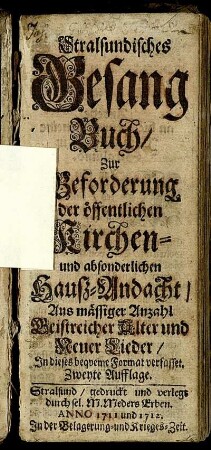 Stralsundisches
Gesang
Buch/
Zur
Beforderung
der öffentlichen
Kirchen-
und absonderlichen
Hauß-Andacht/
Aus mässiger Anzahl
Geistreicher Alter und
Neuer Lieder/
In dieses beqveme Format verfasset.
Zweyte Aufflage.
Stralsund/ gedruckt und verlegt
durch sel. M. Meders Erben.
ANNO 1711 und 1712.
In der Belagerung- und Krieges-Zeit.